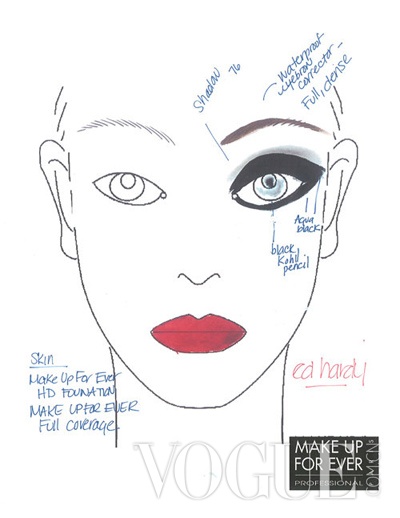 Shadow 76
Waterproof
eyebrow
corrector -
Full, dense
Aqua
black
black
Kohl
pencil
Skin
Make Up For Ever
HD FOUNDATION
MAKE UP FOR EVER
Full Coverage
ed hardy
MAKE UP
FOR EVER
PROFESSIONAL
VOGUE
.COM.CN